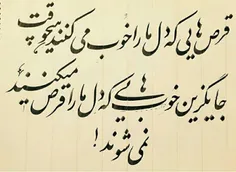 قرص هایی که دل ما را خوب می کنند هیچوقت
جایگزین خوب هایی که دل ما را قرص میکنند
نمی شوند!